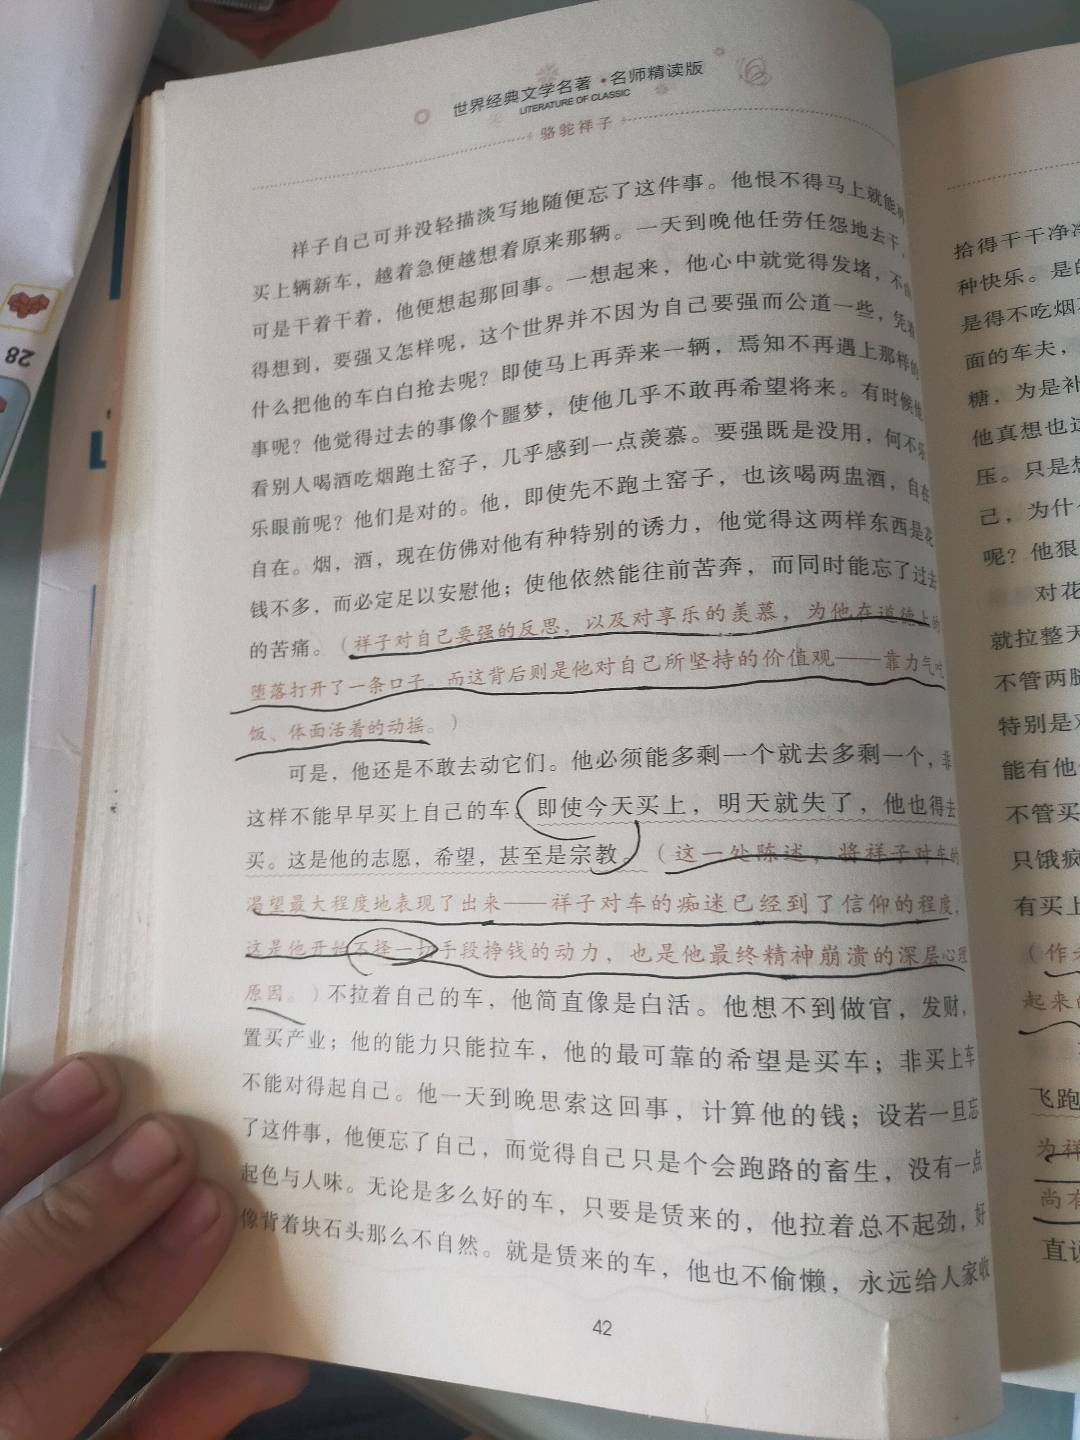 世界经典文学名著·名师精读版
LITERATURE OF CLASSIC
骆驼祥子
祥子自己可并没轻描淡写地随便忘了这件事。他恨不得马上就能再
买上辆新车，越着急便越想着原来那辆。一天到晚他任劳任怨地去干，
可是干着干着，他便想起那回事。一想起来，他心中就觉得发堵，不由
得想到，要强又怎样呢，这个世界并不因为自己要强而公道一些，凭着
什么把他的车白白抢去呢？即使马上再弄来一辆，焉知不再遇上那样的
事呢？他觉得过去的事像个噩梦，使他几乎不敢再希望将来。有时候他
看别人喝酒吃烟跑土窑子，几乎感到一点羡慕。要强既是没用，何不乐
乐眼前呢？他们是对的。他，即使先不跑土窑子，也该喝两盅酒，自在
自在。烟，酒，现在仿佛对他有种特别的诱力，他觉得这两样东西是花
钱不多，而必定足以安慰他；使他依然能往前苦奔，而同时能忘了过去
的苦痛。（祥子对自己要强的反思，以及对享乐的羡慕，为他在道德上的
堕落打开了一条口子。而这背后则是他对自己所坚持的价值观——靠力气吃
饭、体面活着的动摇。）
可是，他还是不敢去动它们。他必须能多剩一个就去多剩一个，非
这样不能早早买上自己的车。即使今天买上，明天就丢了，他也得去
买。这是他的志愿，希望，甚至是宗教。（这一处陈述，将祥子对车的
渴望最大程度地表现了出来——祥子对车的痴迷已经到了信仰的程度，
这是他开始不择一切手段挣钱的动力，也是他最终精神崩溃的深层心理
原因。）不拉着自己的车，他简直像是白活。他想不到做官，发财，
置买产业；他的能力只能拉车，他的最可靠的希望是买车；非买上车
不能对得起自己。他一天到晚思索这回事，计算他的钱；设若一旦忘
了这件事，他便忘了自己，而觉得自己只是个会跑路的畜生，没有一点
起色与人味。无论是多么好的车，只要是赁来的，他拉着总不起劲，好
像背着块石头那么不自然。就是赁来的车，他也不偷懒，永远给人家收
42
拾得干干净
种快乐。是的
是得不吃烟
面的车夫，
糖，为是补
他真想也
压。只是想
己，为什
呢？他狠
对花
就拉整天
不管两腿
特别是
能有他
不管买
只饿疯
有买上
（作
起来的
飞跑
为祥
尚有
直
28